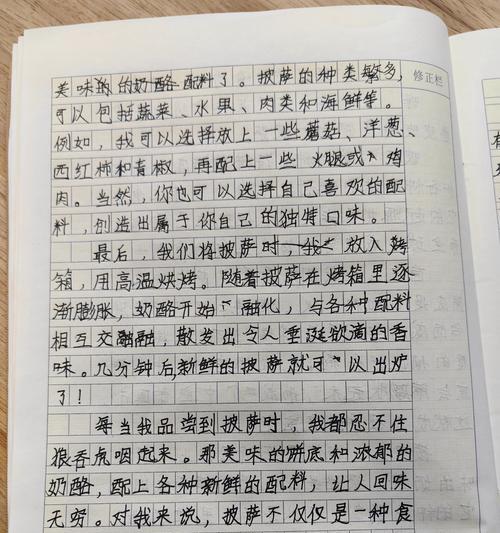 美味的奶酪配料了。披萨的种类繁多,
修正栏
可以包括蔬菜、水果、肉类和海鲜等。
例如,我可以选择放上一些蘑菇、洋葱、
西红柿和青椒,再配上一些火腿或鸡
肉。当然,你也可以选择自己喜欢的配
料,创造出属于你自己的独特口味。
最后,我们将披萨放入烤
箱,用高温烘烤。随着披萨在烤箱里逐
渐膨胀,奶酪开始融化,与各种配料
相互交融融,散发出令人垂涎欲滴的香
味。几分钟后,新鲜的披萨就可以出炉
了!
每当我品尝到披萨时,我都忍不住
狼吞虎咽起来。那美味的饼底和浓郁的
奶酪,配上各种新鲜的配料,让人回味
无穷。对我来说,披萨不仅仅是一种食